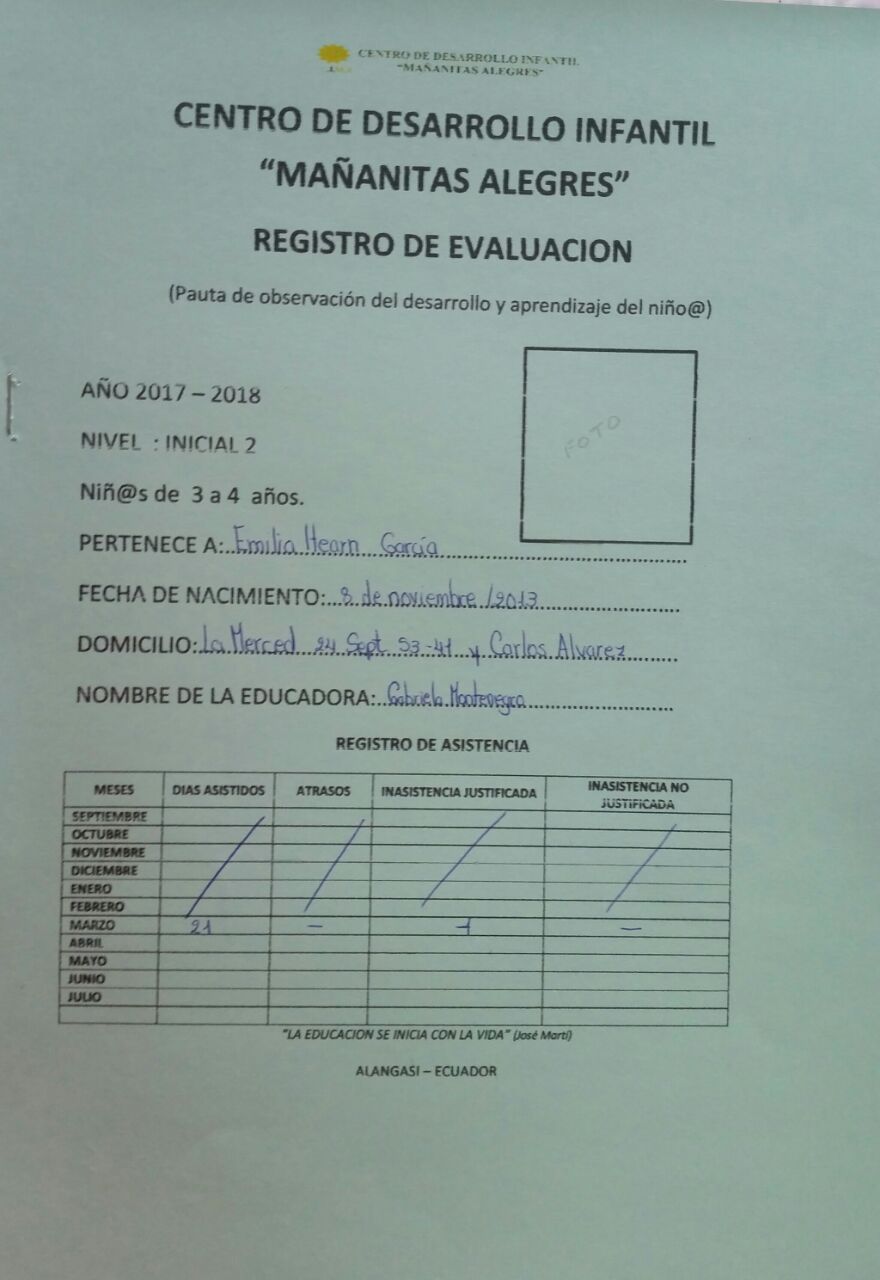 CENTRO DE DESARROLLO INFANTIL
"MAÑANITAS ALEGRES"
CENTRO DE DESARROLLO INFANTIL
“MAÑANITAS ALEGRES”
REGISTRO DE EVALUACION
(Pauta de observación del desarrollo y aprendizaje del niño@)
FOTO
AÑO 2017 – 2018
NIVEL : INICIAL 2
Niñ@s de 3 a 4 años.
PERTENECE A: Emilia Hearn García
FECHA DE NACIMIENTO: 8 de noviembre /2013
DOMICILIO: La Merced 24 Sept 53-41 y Carlos Alvarez
NOMBRE DE LA EDUCADORA: Gabriela Montenegro
REGISTRO DE ASISTENCIA
MESES DIAS ASISTIDOS ATRASOS INASISTENCIA JUSTIFICADA INASISTENCIA NO JUSTIFICADA
SEPTIEMBRE
OCTUBRE
NOVIEMBRE
DICIEMBRE
ENERO
FEBRERO
MARZO 21 – 1 –
ABRIL
MAYO
JUNIO
JULIO
"LA EDUCACION SE INICIA CON LA VIDA" (José Martí)
ALANGASI – ECUADOR